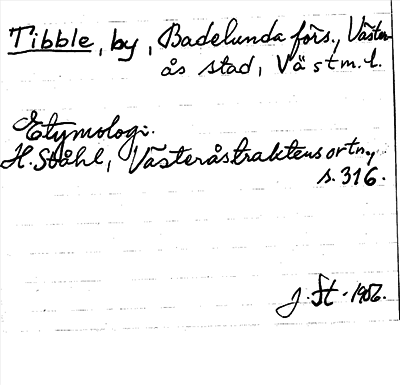 Tibble, by, Badelunda förs., Väster-
ås stad, Västm. l.
Etymologi.
H. Ståhl, Västeråstraktens ortn.,
s. 316.
J. St. 1986.